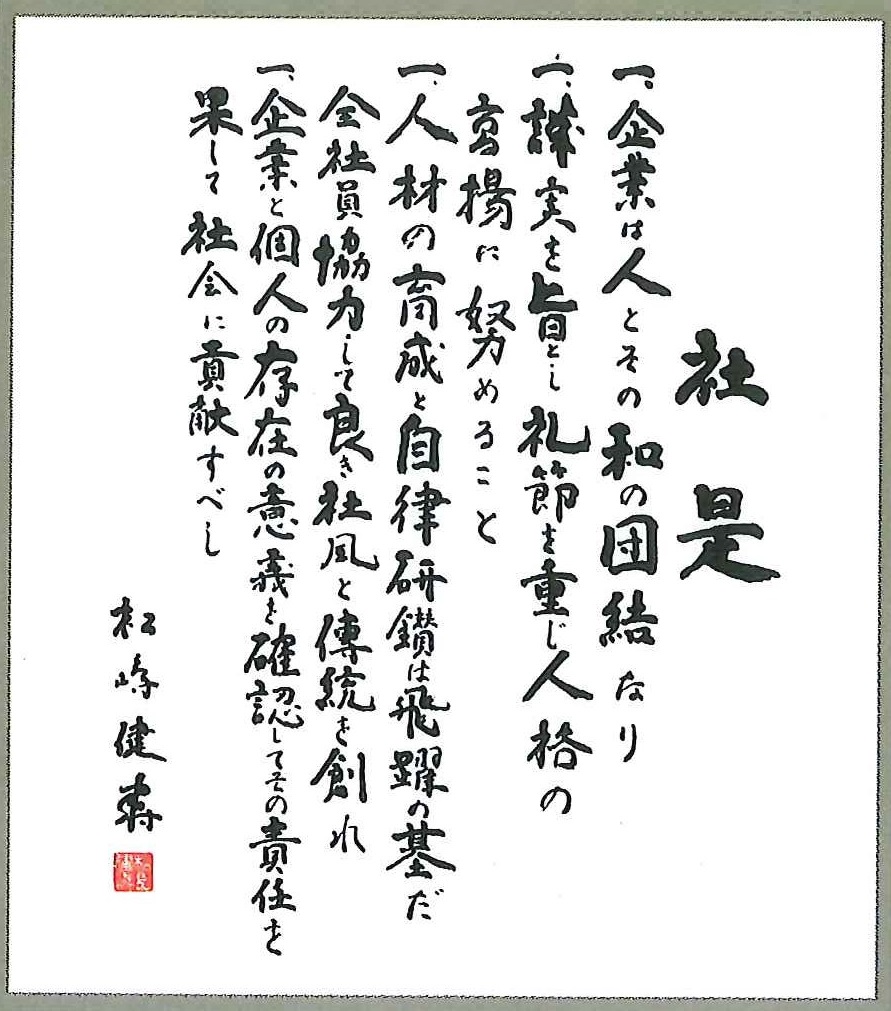 社是
一、企業は人とその和の団結なり
一、誠実を旨とし礼節を重じ人格の
高揚に努めること
一、人材の育成と自律研鑽は飛躍の基だ
全社員協力して良き社風と傳統を創れ
一、企業と個人の存在の意義を確認してその責任を
果して社会に貢献すべし
松嶋健壽